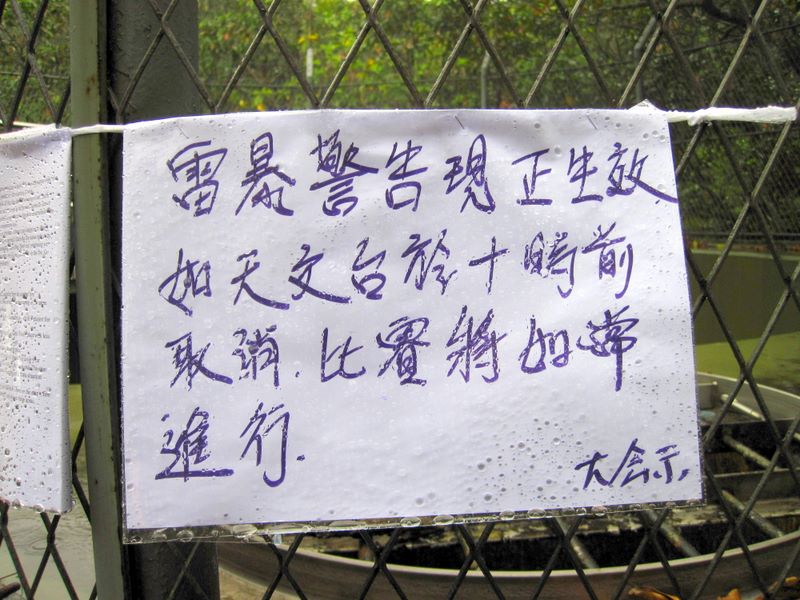 雷暴警告現正生效
如天文台於十時前
取消.比賽將如常
進行.
大会示.